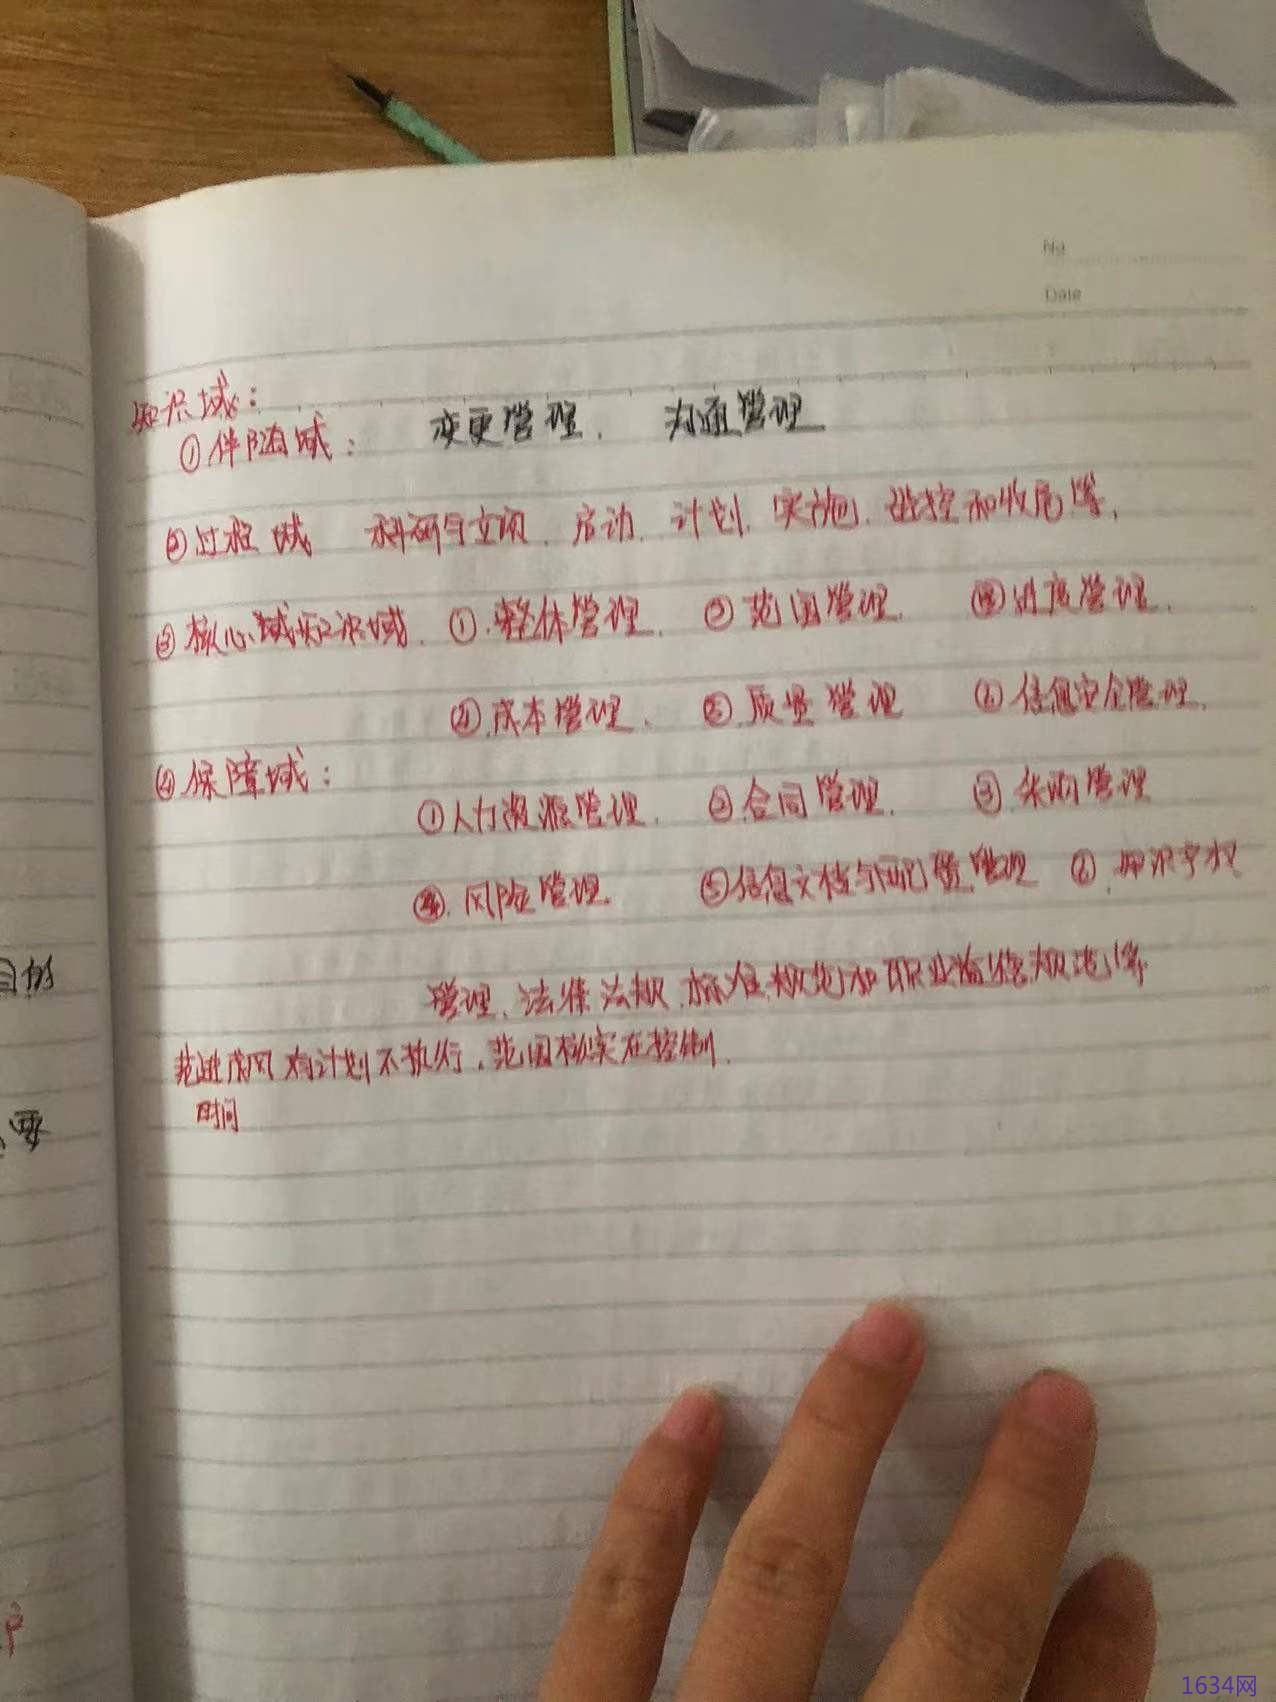 No
Date
知识域：
①伴随域： 变更管理. 沟通管理
②过程域 科研与立项、启动、计划、实施、监控和收尾等,
③核心域知识域. ①.整体管理. ②范围管理. ③进度管理.
④.成本管理. ⑤.质量管理 ⑥信息安全管理.
④保障域：
①人力资源管理. ②.合同管理. ③.采购管理
④.风险管理. ⑤信息文档与配置管理 ⑥.知识产权
管理、法律法规、标准规范和职业道德规范等
范进成风有计划不执行，范围核实在控制.
时间
目的
要
户
1634网